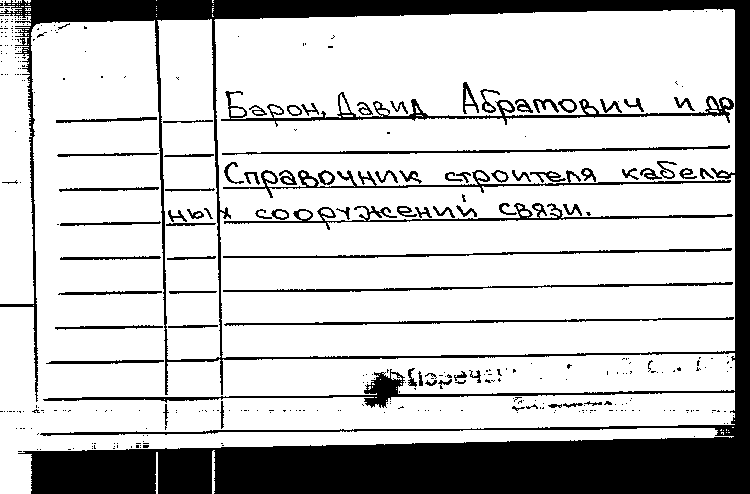 Барон, Давид Абрамович и др
Справочник строителя кабель-
ных сооружений связи.